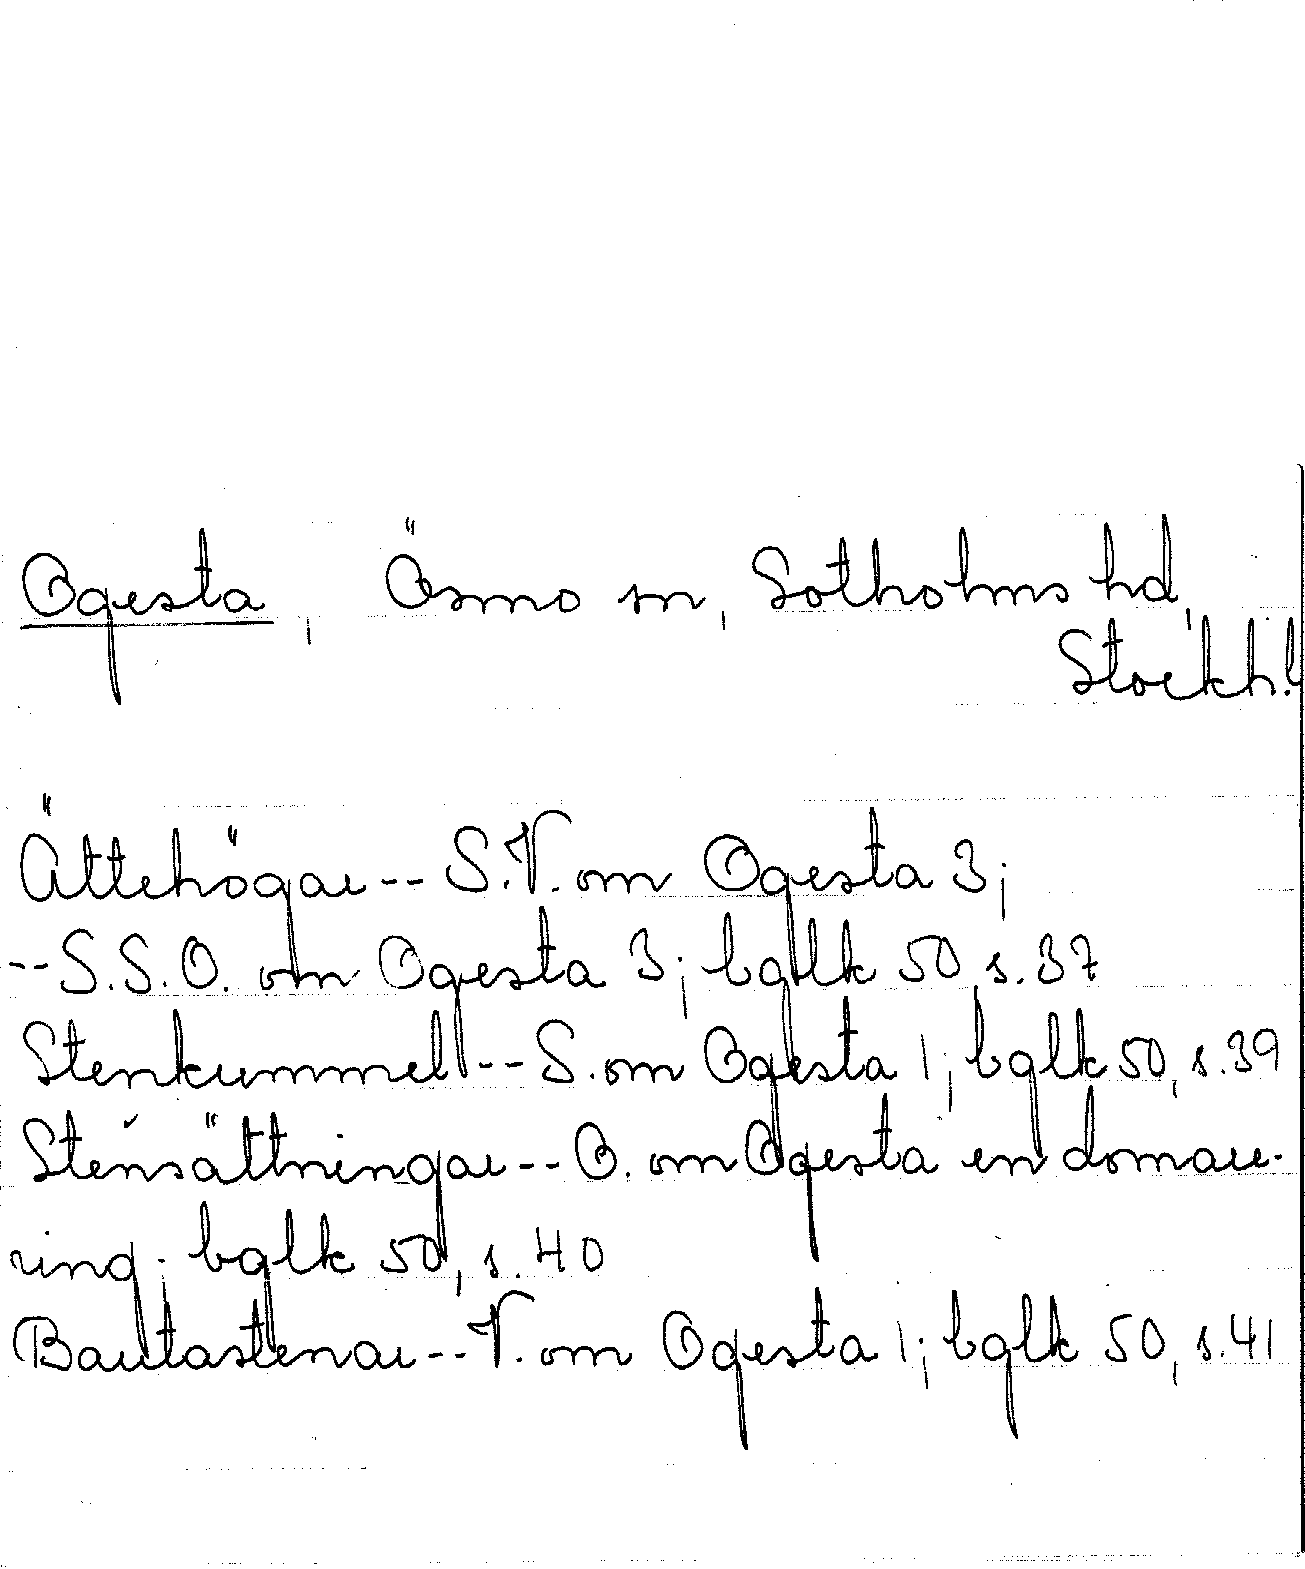 Ogesta, Ösmo sn, Sotholms hd,
Stockh.l
Ättehögar -- S.V. om Ogesta 3;
-- S.S.O. om Ogesta 3; bglk 50 s. 37
Stenkummel -- S. om Ogesta 1; bglk 50, s. 39
Stensättningar -- O. om Ogesta en domar-
ring; bglk 50, s. 40
Bautastenar -- V. om Ogesta 1; bglk 50, s. 41